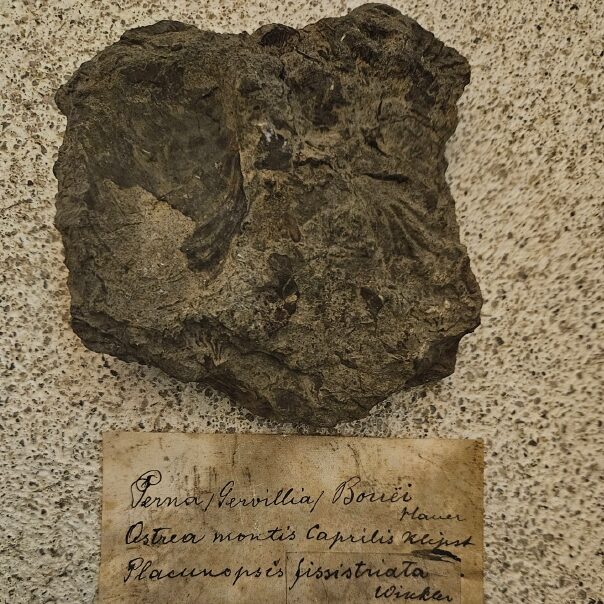 Perna/Gervillia/ Bouëi
Hauer
Ostrea montis Caprilis Klipst
Placunopsis fissistriata
Winkler